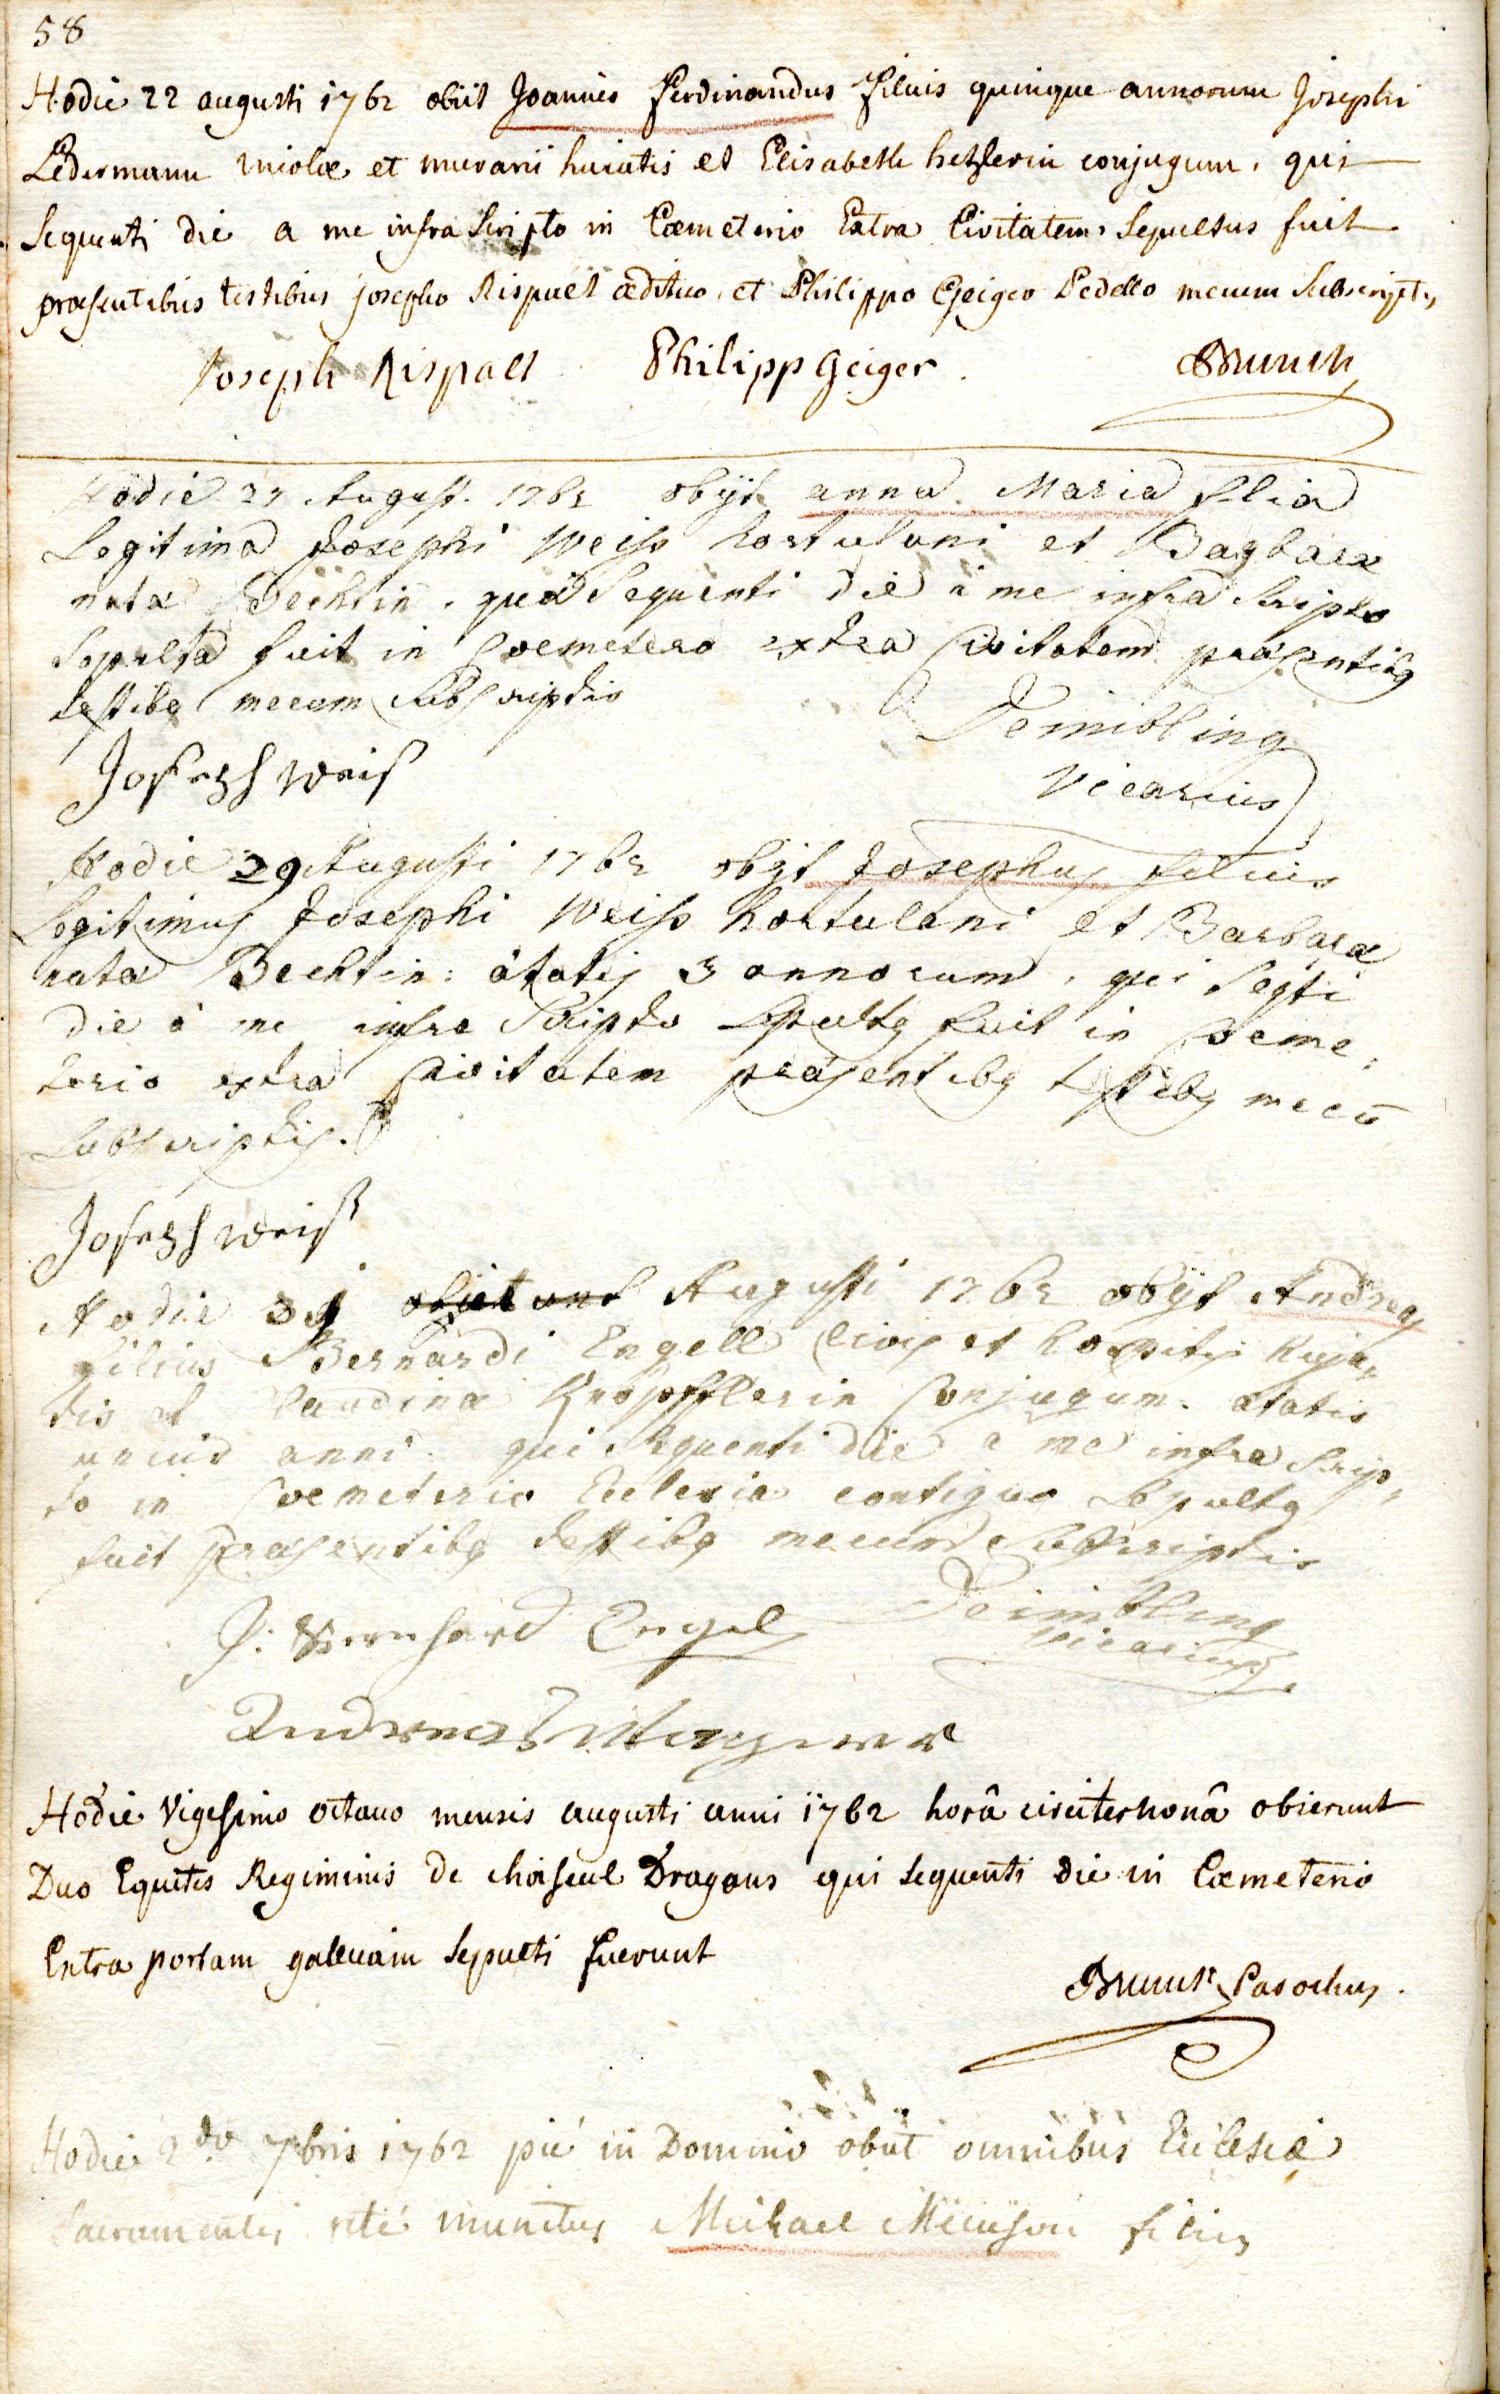 58
Hodie 22 augusti 1762 obiit Joannes Ferdinandus filius quinque annorum Josephi
Ledermann incolæ et murarii huiatis et Elisabeth hetzlerin conjugum, qui
Sequenti die a me infra Scripto in Cœmeterio Extra Civitatem Sepultus fuit
præsentibus testibus josepho Rispalt ædituo, et Philippo Geiger Pedello mecum Subscriptis
Joseph Rispalt Philipp Geiger. Brunck
Hodie 27 August. 1762 obÿt anna Maria filia
Legitima Josephi Weiss hortulani et Bagbara
nata Bechtin, qua Sequenti die à me infra Scripto
Sepulta fuit in Coemetero extra Civitatem præsentibq
testibq mecum Subscriptis
Deimbling
Joseph weis
Vicarius
Hodie 29 Augusti 1762 obÿt Josephus filius
Legitimus Josephi Weiss hortulani et Barbara
nata Bechtin: ätatis 3 annorum, qui Seqti
die à me infra Scripto Sepultq fuit in Coeme:
terio extra Civitatem präsentibq testibq mecū
Subscriptis.
Joseph weiß
Hodie 31 Augusti 1762 obÿt Andreas
filius Bernardi Engell Civis et hospitis huja,,
tis et Claudina Knöpfflerin Conjugum. ätatis
unius anni. qui Sequenti die a me infra Scrip,,
to in Coemeterio Ecclesia contiguo Sepultq
fuit præsentibq testibq mecum Subscriptis
J: Bernhard Engel Deimbling
Vicarius
Hodie Vigesimo octavo mensis augusti anni 1762 horâ circiter nonâ obierunt
Duo Equites Regiminis de choiseul Dragons qui Sequenti die in Cœmeterio
Extra portam gallicam Sepulti fuerunt
Brunck Parochus.
Hodie 2do 7bris 1762 pié in Domino obiit omnibus Ecclesiæ
Sacramentis rité munitus Michael filius